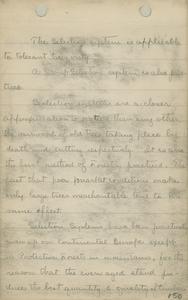 The Selection system is applicable
to tolerant trees only.
A Group Selection system is also prac-
ticed.
Selection systems are a closer
approximation to nature than any other
the removal of old trees taking place by
death and cutting respectively. It is one
the first method of Forestry practiced. The
fact that poor market conditions make
only large trees merchantable tend to the
same effect.
Selection Systems have been practiced
mainly on Continental Europe especially
in Protection Forests in mountains, for the
reason that the even aged stand pro-
duces the best quantity & quality of timber
150